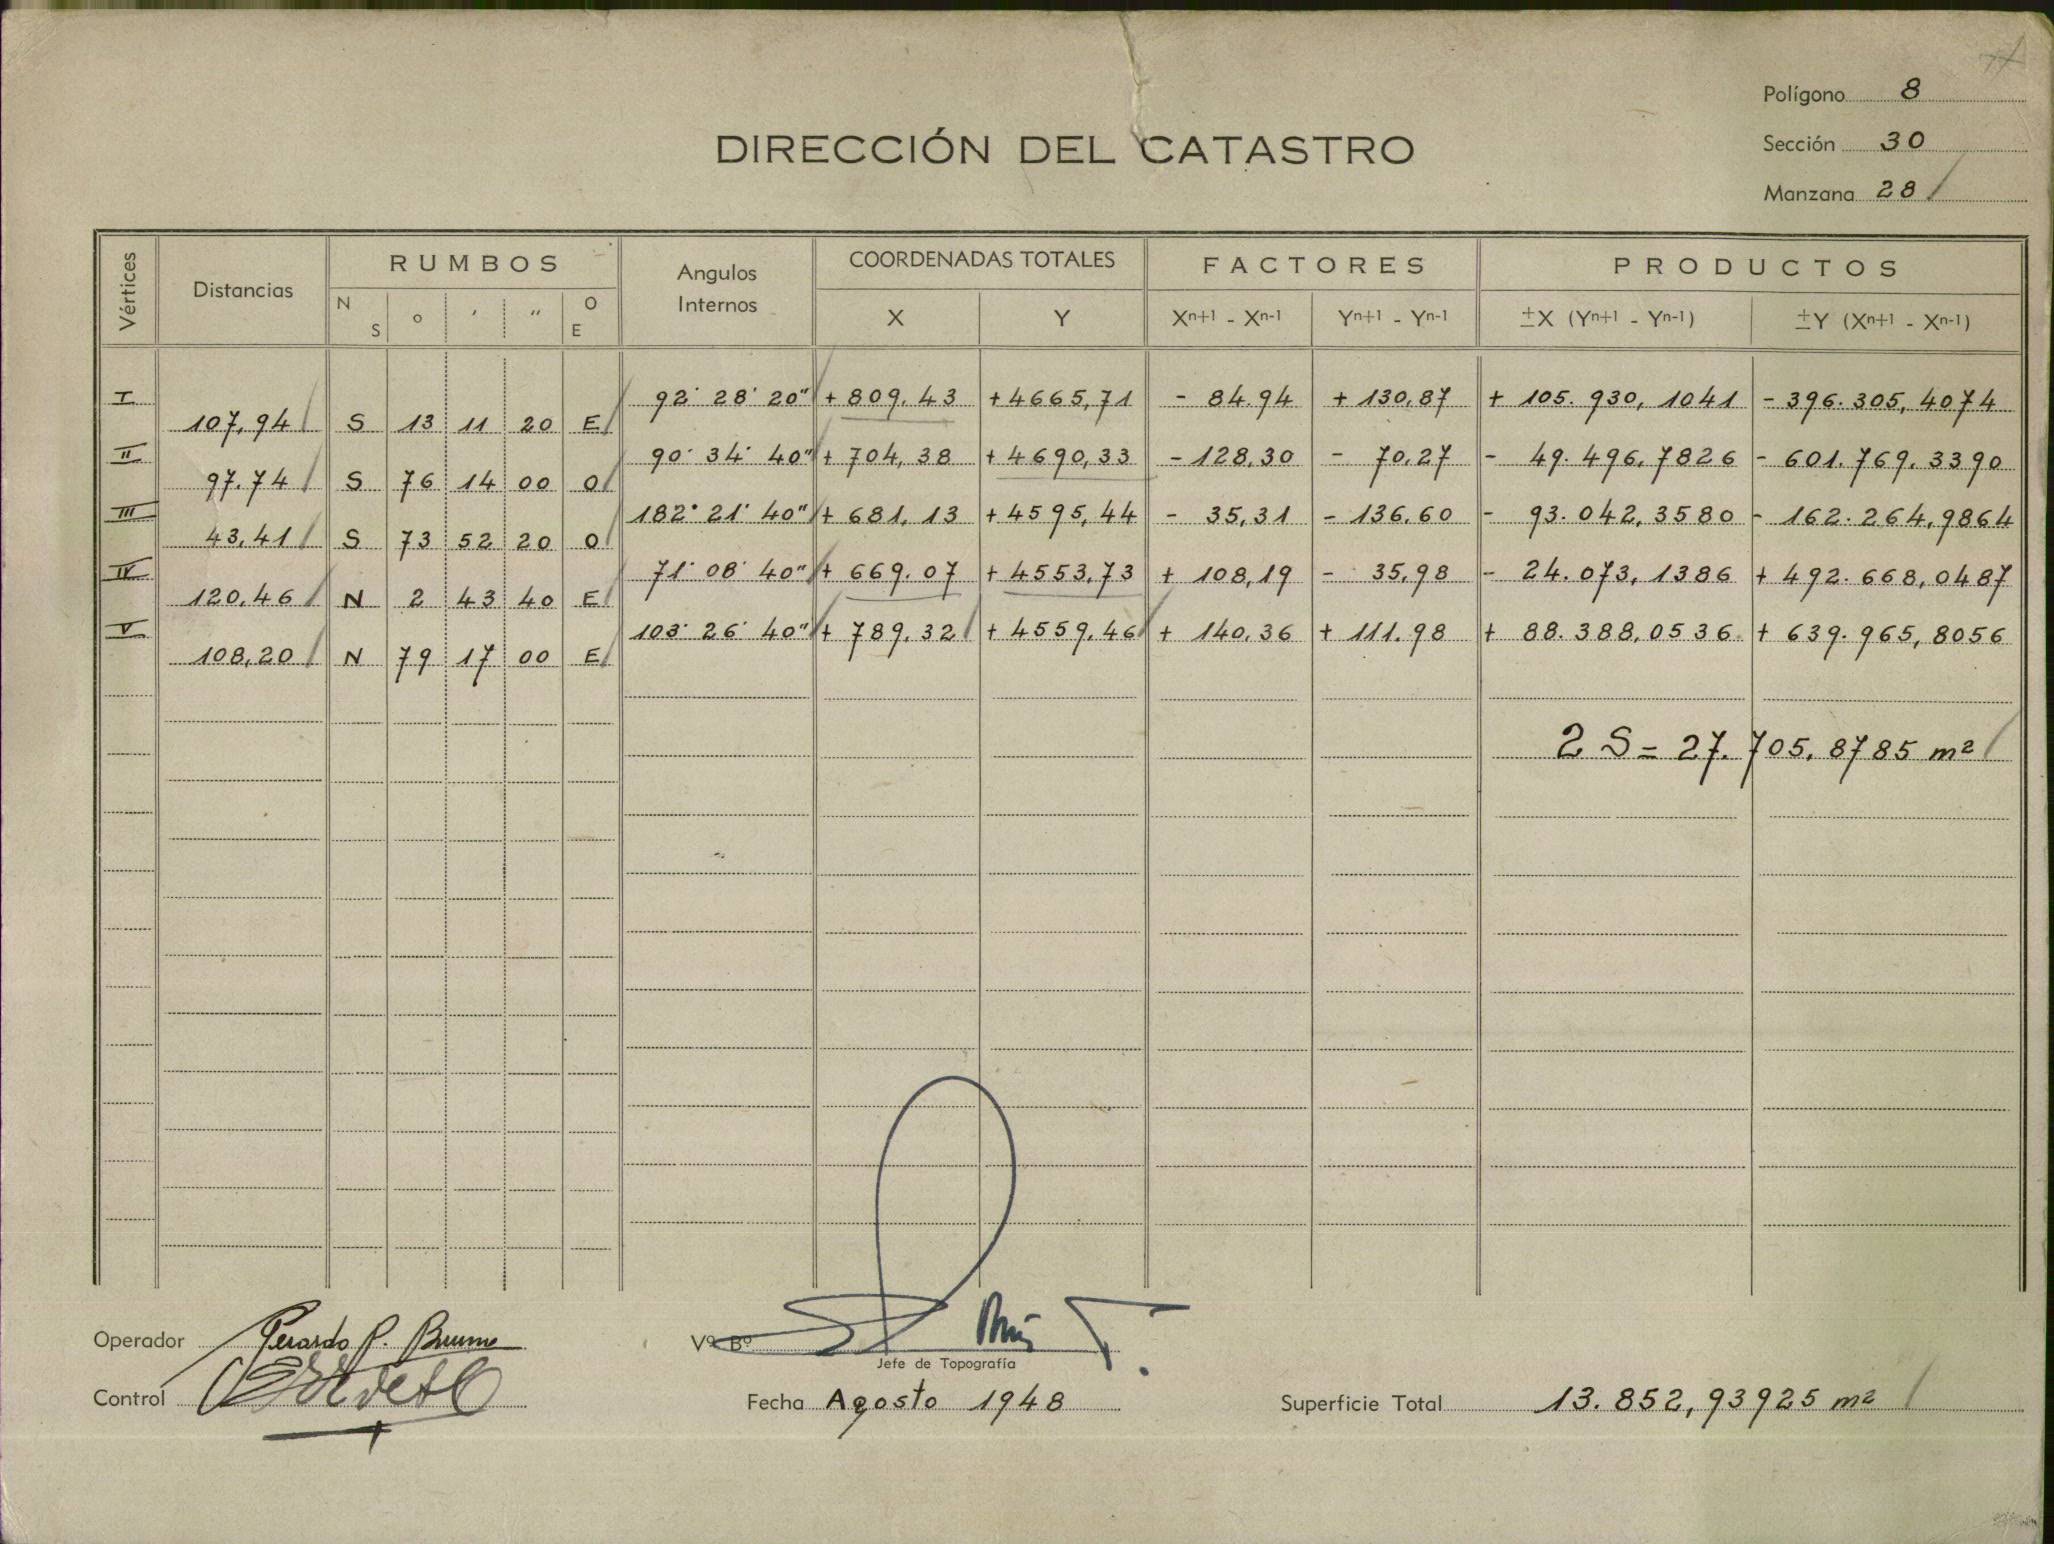 Polígono 8
DIRECCIÓN DEL CATASTRO
Sección 30
Manzana 28
Vértices Distancias RUMBOS Angulos Internos COORDENADAS TOTALES FACTORES PRODUCTOS
N S ° ′ ″ O E X Y Xⁿ⁺¹ - Xⁿ⁻¹ Yⁿ⁺¹ - Yⁿ⁻¹ ±X (Yⁿ⁺¹ - Yⁿ⁻¹) ±Y (Xⁿ⁺¹ - Xⁿ⁻¹)
I 92° 28' 20" + 809.43 + 4665,71 - 84.94 + 130,87 + 105.930,1041 - 396.305,4074
107,94 S 13 11 20 E
II 90° 34' 40" + 704,38 + 4690,33 - 128,30 - 70,27 - 49.496,7826 - 601.769,3390
97.74 S 76 14 00 O
III 182° 21' 40" + 681,13 + 4595,44 - 35,31 - 136.60 - 93.042,3580 - 162.264,9864
43,41 S 73 52 20 O
IV 71° 08' 40" + 669.07 + 4553,73 + 108,19 - 35,98 - 24.073,1386 + 492.668,0487
120,46 N 2 43 40 E
V 103° 26' 40" + 789,32 + 4559,46 + 140,36 + 111.98 + 88.388,0536 + 639.965,8056
108,20 N 79 17 00 E
2 S = 27.705,8785 m²
Operador Gerardo P. Brume
Vº Bº
Jefe de Topografía
Control
Fecha Agosto 1948
Superficie Total 13.852,93925 m²